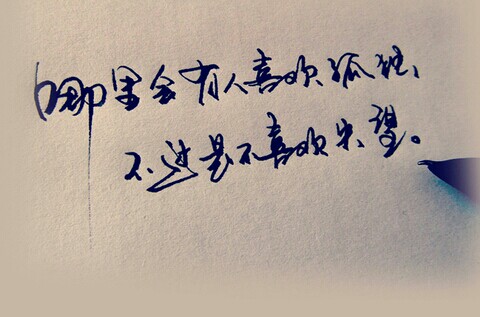 哪里会有人喜欢孤独，
不过是不喜欢失望。